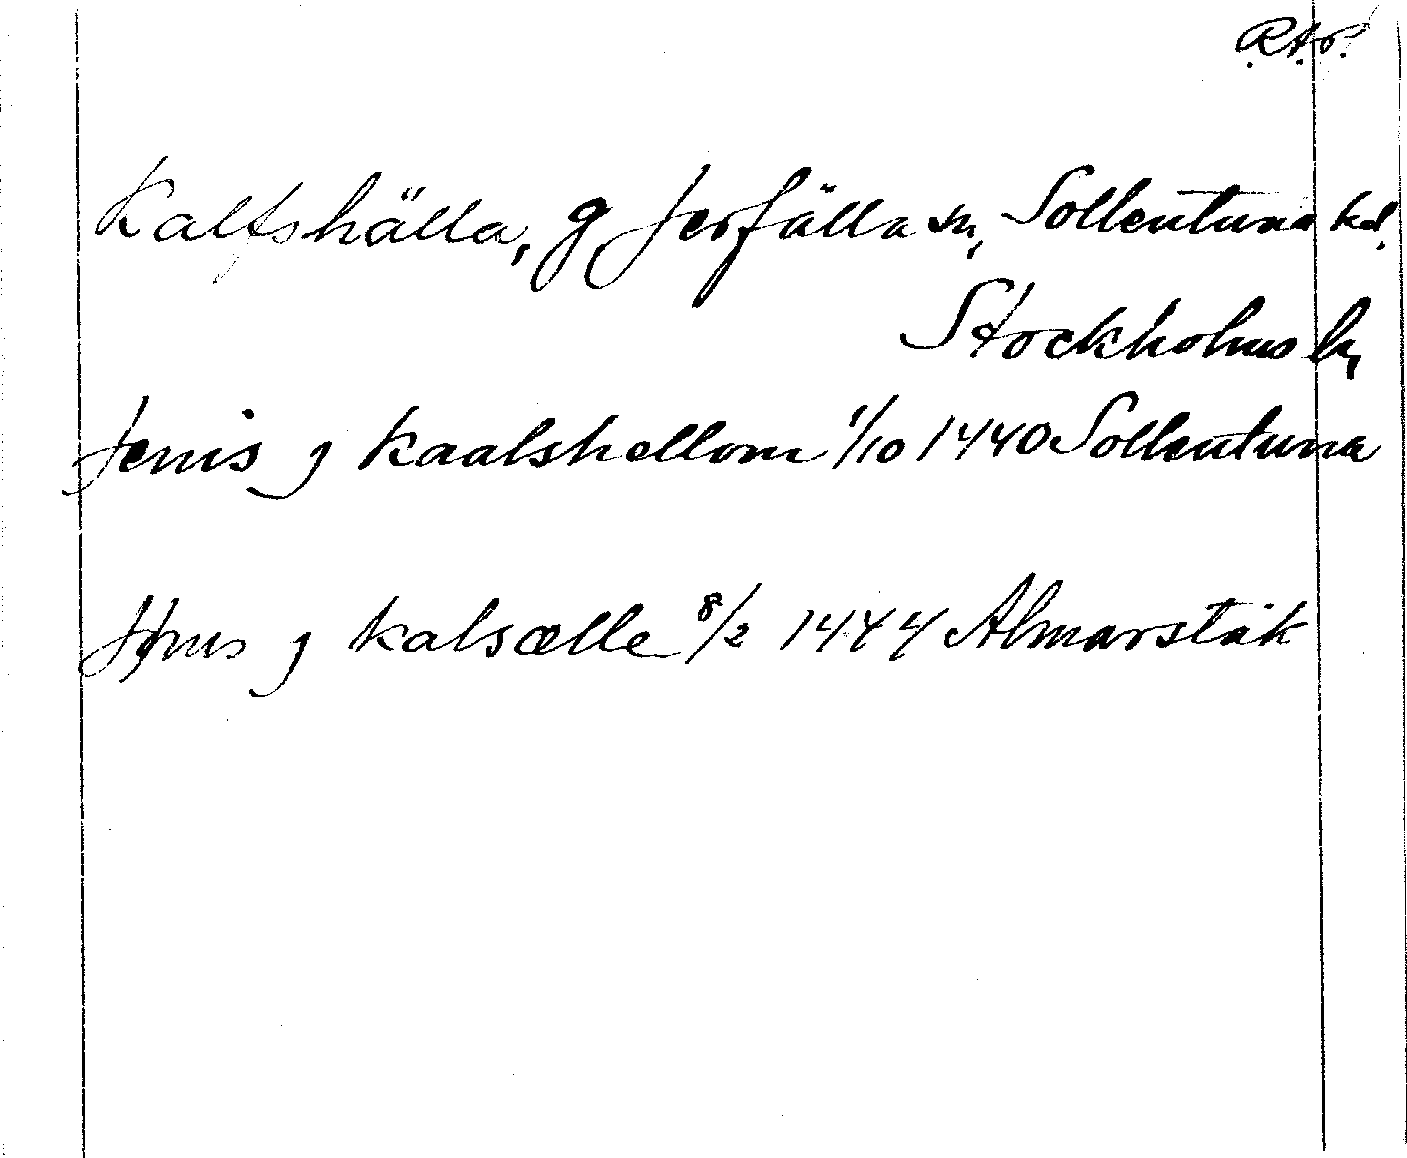 R.A.P.
Kalfshälla, g Jerfälla sn, Sollentuna hd.
Stockholms ln,
Jenis j kaalshellom 1/10 1440 Sollentuna
j kalsælle 8/2 1444 Almarstäk